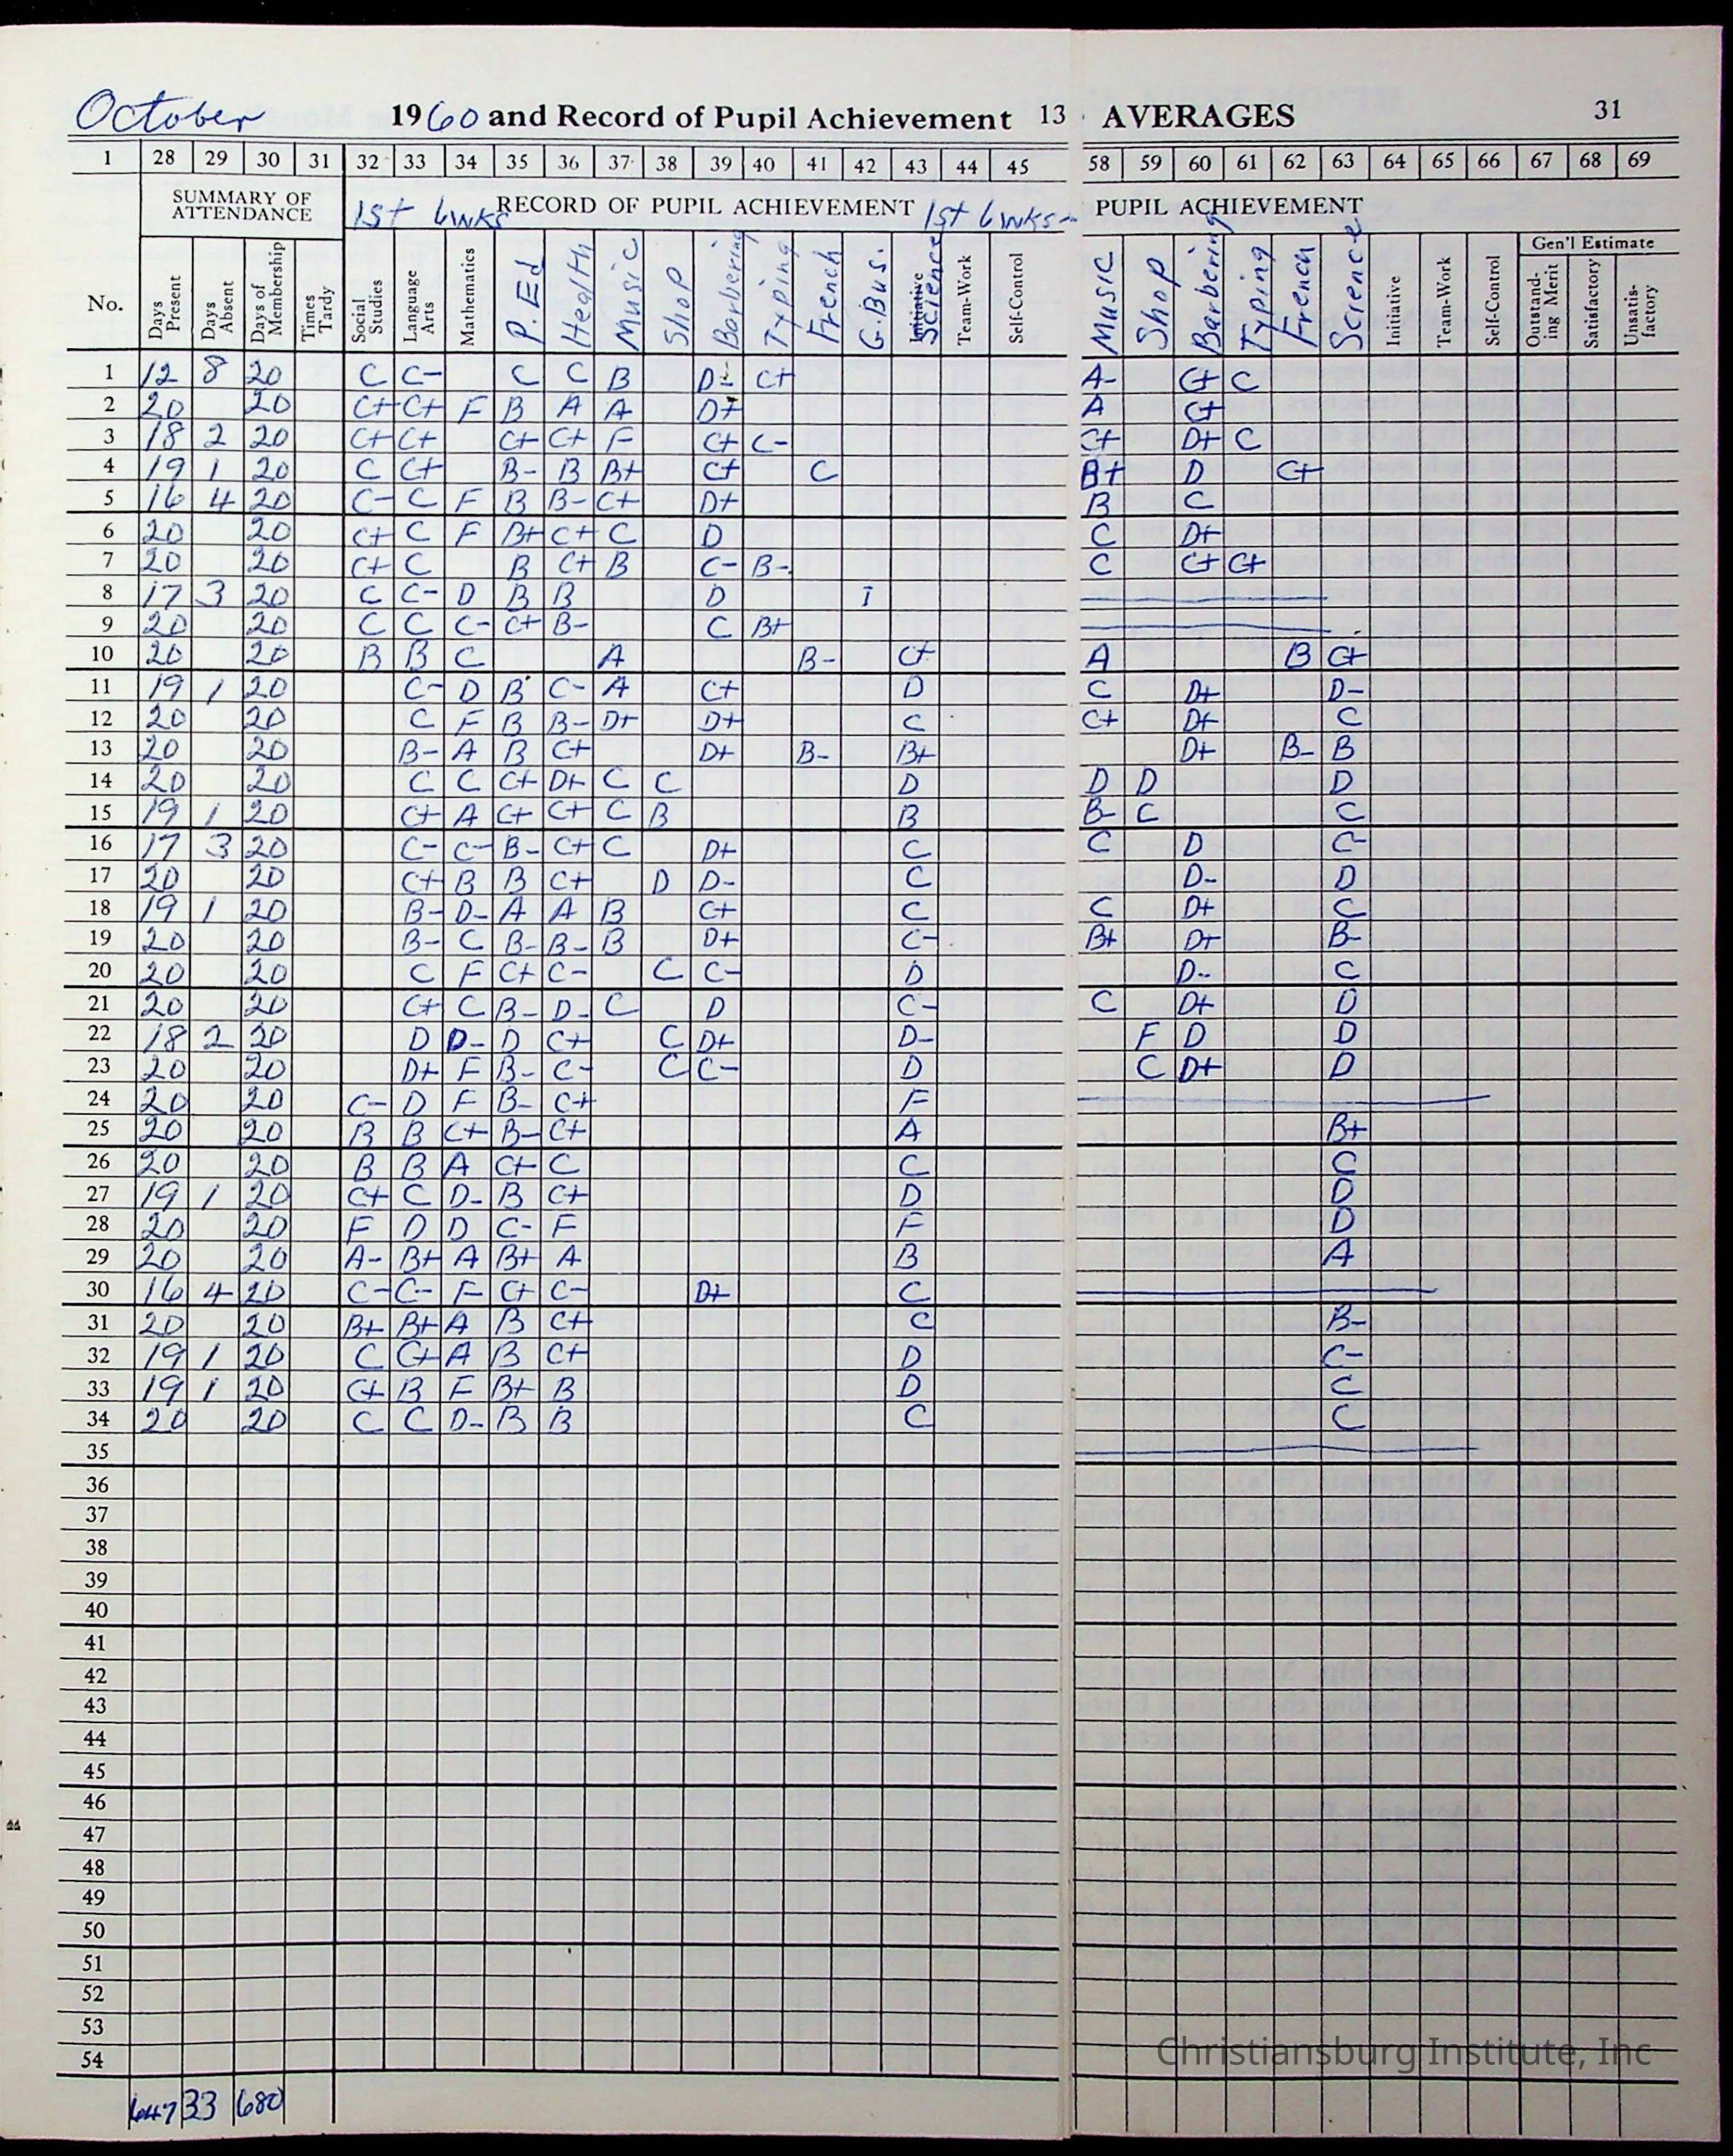 October 1960 and Record of Pupil Achievement 13 AVERAGES 31
1 28 29 30 31 32 33 34 35 36 37 38 39 40 41 42 43 44 45 58 59 60 61 62 63 64 65 66 67 68 69
SUMMARY OF ATTENDANCE 1st 6wks RECORD OF PUPIL ACHIEVEMENT 1st 6wks PUPIL ACHIEVEMENT
Gen'l Estimate
No. Days Present Days Absent Days of Membership Times Tardy Social Studies Language Arts Mathematics P.Ed Health Music Shop Barbering Typing French G.Bus. Initiative Science Team-Work Self-Control Music Shop Barbering Typing French Science Initiative Team-Work Self-Control Outstanding Merit Satisfactory Unsatis-factory
1 12 8 20 C C- C C B D- C+ A- C+ C
2 20 20 C+ C+ F B A A D+ A C+
3 18 2 20 C+ C+ C+ C+ F C+ C- C+ D+ C
4 19 1 20 C C+ B- B B+ C+ C B+ D C+
5 16 4 20 C- C F B B- C+ D+ B C
6 20 20 C+ C F B+ C+ C D C D+
7 20 20 C+ C B C+ B C- B- C C+ C+
8 17 3 20 C C- D B B D I
9 20 20 C C C- C+ B- C B+
10 20 20 B B C A B- C+ A B C+
11 19 1 20 C- D B C- A C+ D C D+ D-
12 20 20 C F B B- D+ D+ C C+ D+ C
13 20 20 B- A B C+ D+ B- B+ D+ B- B
14 20 20 C C C+ D+ C C D D D D
15 19 1 20 C+ A C+ C+ C B B B- C C
16 17 3 20 C- C- B- C+ C D+ C C D C-
17 20 20 C+ B B C+ D D- C D- D
18 19 1 20 B- D- A A B C+ C C D+ C
19 20 20 B- C B- B- B D+ C- B+ D+ B-
20 20 20 C F C+ C- C C- D D- C
21 20 20 C+ C B- D- C D C- C D+ D
22 18 2 20 D D- D C+ C D+ D- F D D
23 20 20 D+ F B- C- C C- D C D+ D
24 20 20 C- D F B- C+ F
25 20 20 B B C+ B- C+ A B+
26 20 20 B B A C+ C C C
27 19 1 20 C+ C D- B C+ D D
28 20 20 F D D C- F F D
29 20 20 A- B+ A B+ A B A
30 16 4 20 C- C- F C+ C- D+ C
31 20 20 B+ B+ A B C+ C B-
32 19 1 20 C C+ A B C+ D C-
33 19 1 20 C+ B F B+ B D C
34 20 20 C C D- B B C C
35
36
37
38
39
40
41
42
43
44
45
46
47
48
49
50
51
52
53
54
647 33 680
Christiansburg Institute, Inc